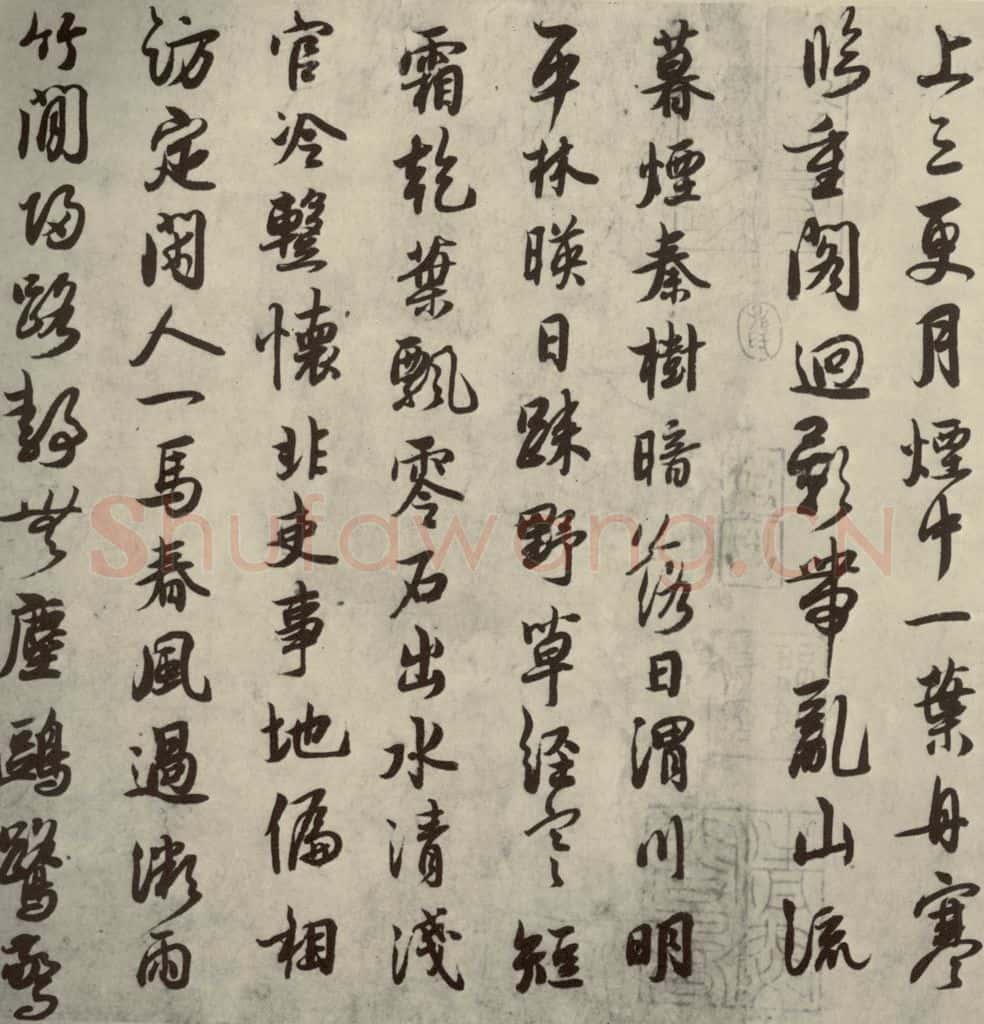 上三更月煙中一葉舟寒
臨重閣迥影帶亂山流
暮煙秦樹暗落日渭川明
平林暎日疎野草經冬短
霜乾葉飄零石出水清淺
官冷整懷非吏事地偏相
訪定閑人一馬春風過微雨
竹間歸路靜無塵鷗鷺驚
Shufawang.CN